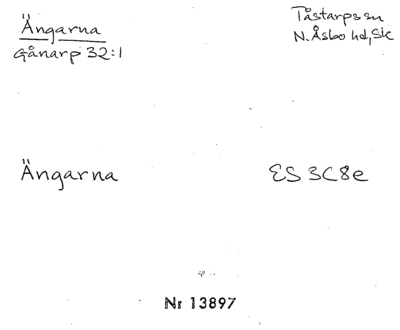 Ängarna
Gånarp 32:1
Tåstarps sn
N. Åsbo hd, Sk
Ängarna
ES 3C8e
Nr 13897